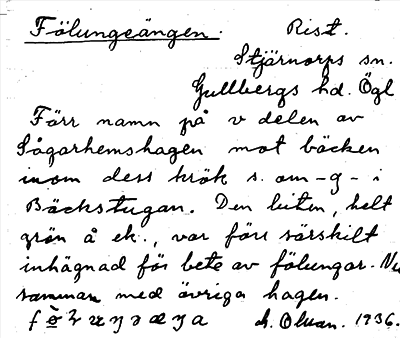 Fölungeängen. Rist.
Stjärnorps sn.
Gullbergs hd. Ögl
Förr namn på v delen av
Sågarhemshagen mot bäcken
inom dess krök s. om -g- i
Bäckstugan. Den liten, helt
grön å ek., var förr särskilt
inhägnad för bete av fölungar. Nu
samman med övriga hagen.
1936.